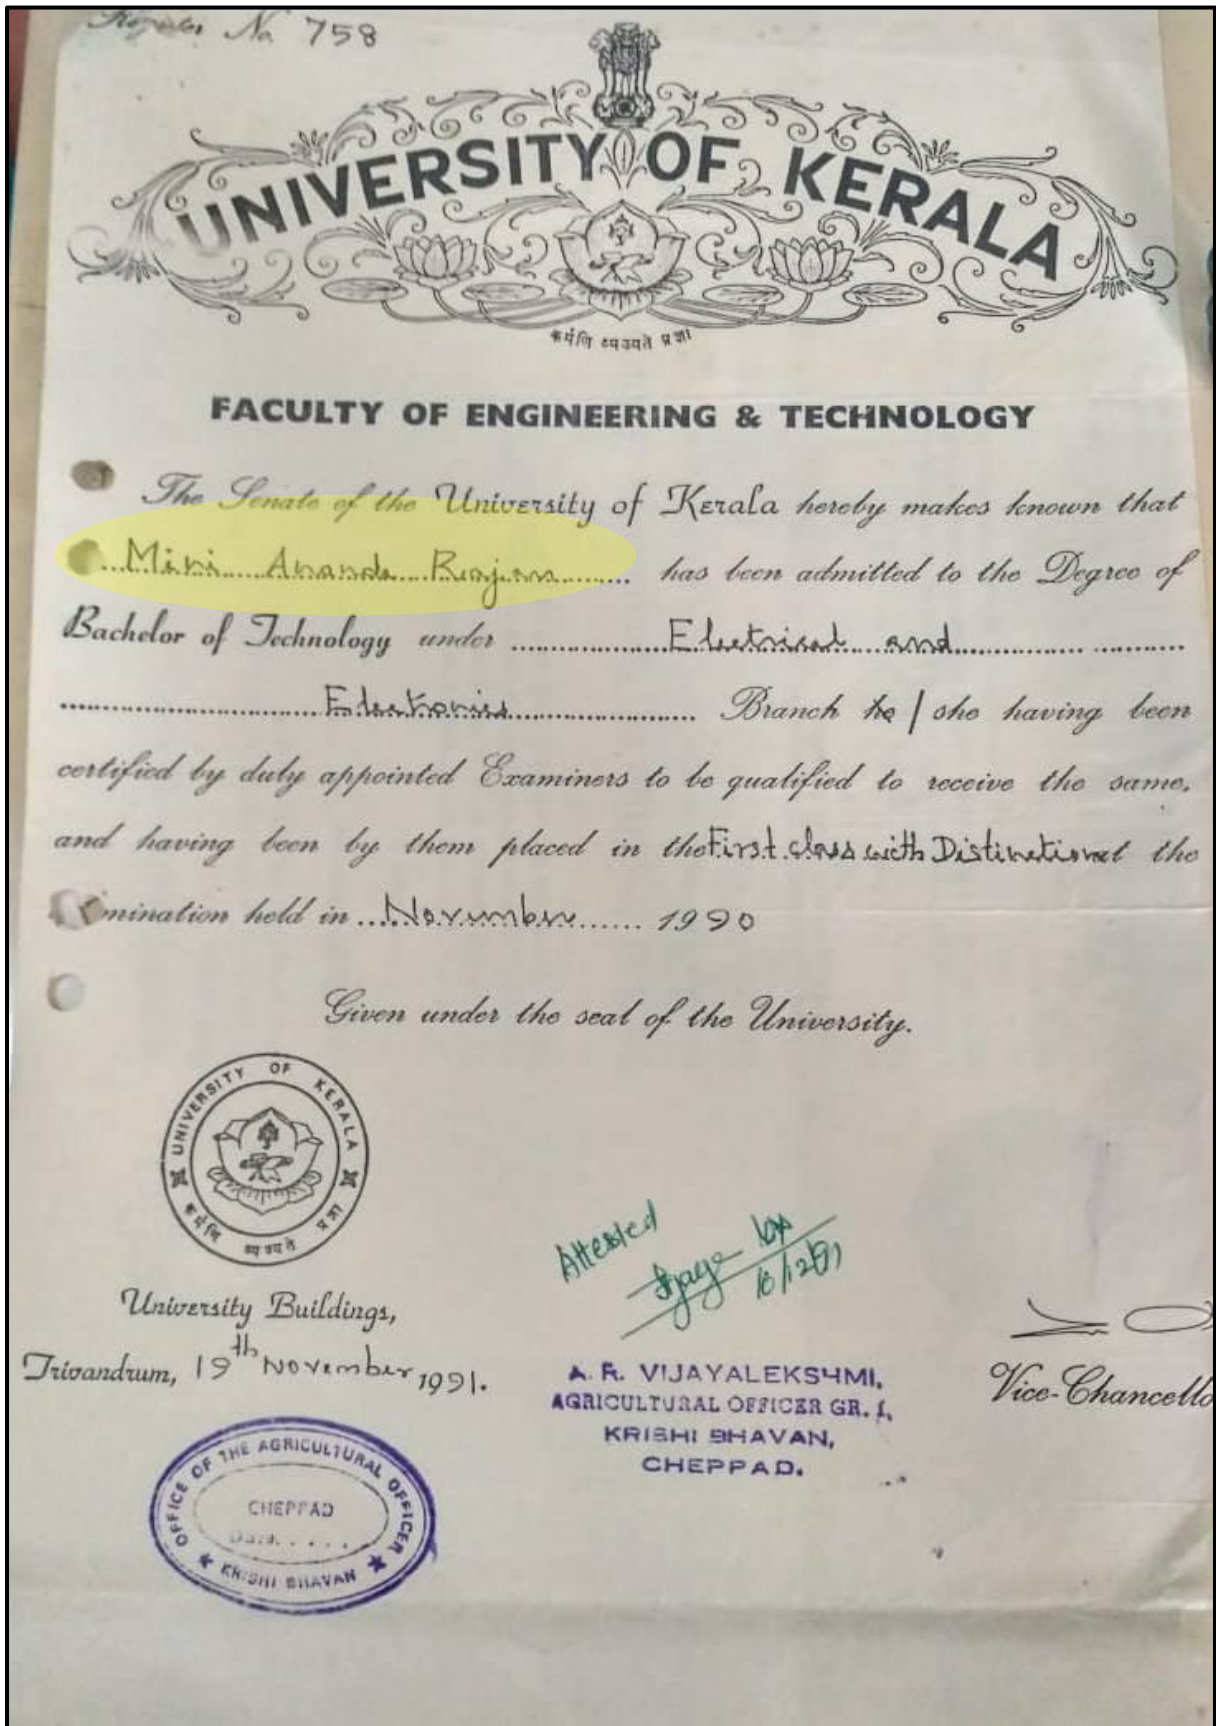 Register No. 758
UNIVERSITY OF KERALA
कर्मणि व्यज्यते प्रज्ञा
FACULTY OF ENGINEERING & TECHNOLOGY
The Senate of the University of Kerala hereby makes known that
Mini Ananda Rajan has been admitted to the Degree of
Bachelor of Technology under Electrical and
Electronics Branch he / she having been
certified by duly appointed Examiners to be qualified to receive the same,
and having been by them placed in the First class with Distinction at the
mination held in November 1990
Given under the seal of the University.
UNIVERSITY OF KERALA
कर्मणि व्यज्यते प्रज्ञा
University Buildings,
Trivandrum, 19th November 1991.
Attested
A. R. VIJAYALEKSHMI,
AGRICULTURAL OFFICER GR. I,
KRISHI BHAVAN,
CHEPPAD.
Vice-Chancello
OFFICE OF THE AGRICULTURAL OFFICER
CHEPPAD
KRISHI BHAVAN